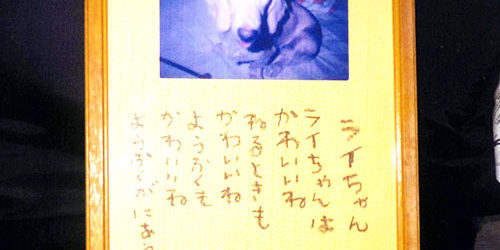 ライちゃん
ライちゃんは
かわいいね
ねるときも
かわいいね
ようふくも
かわいいね
ようふくがにあ